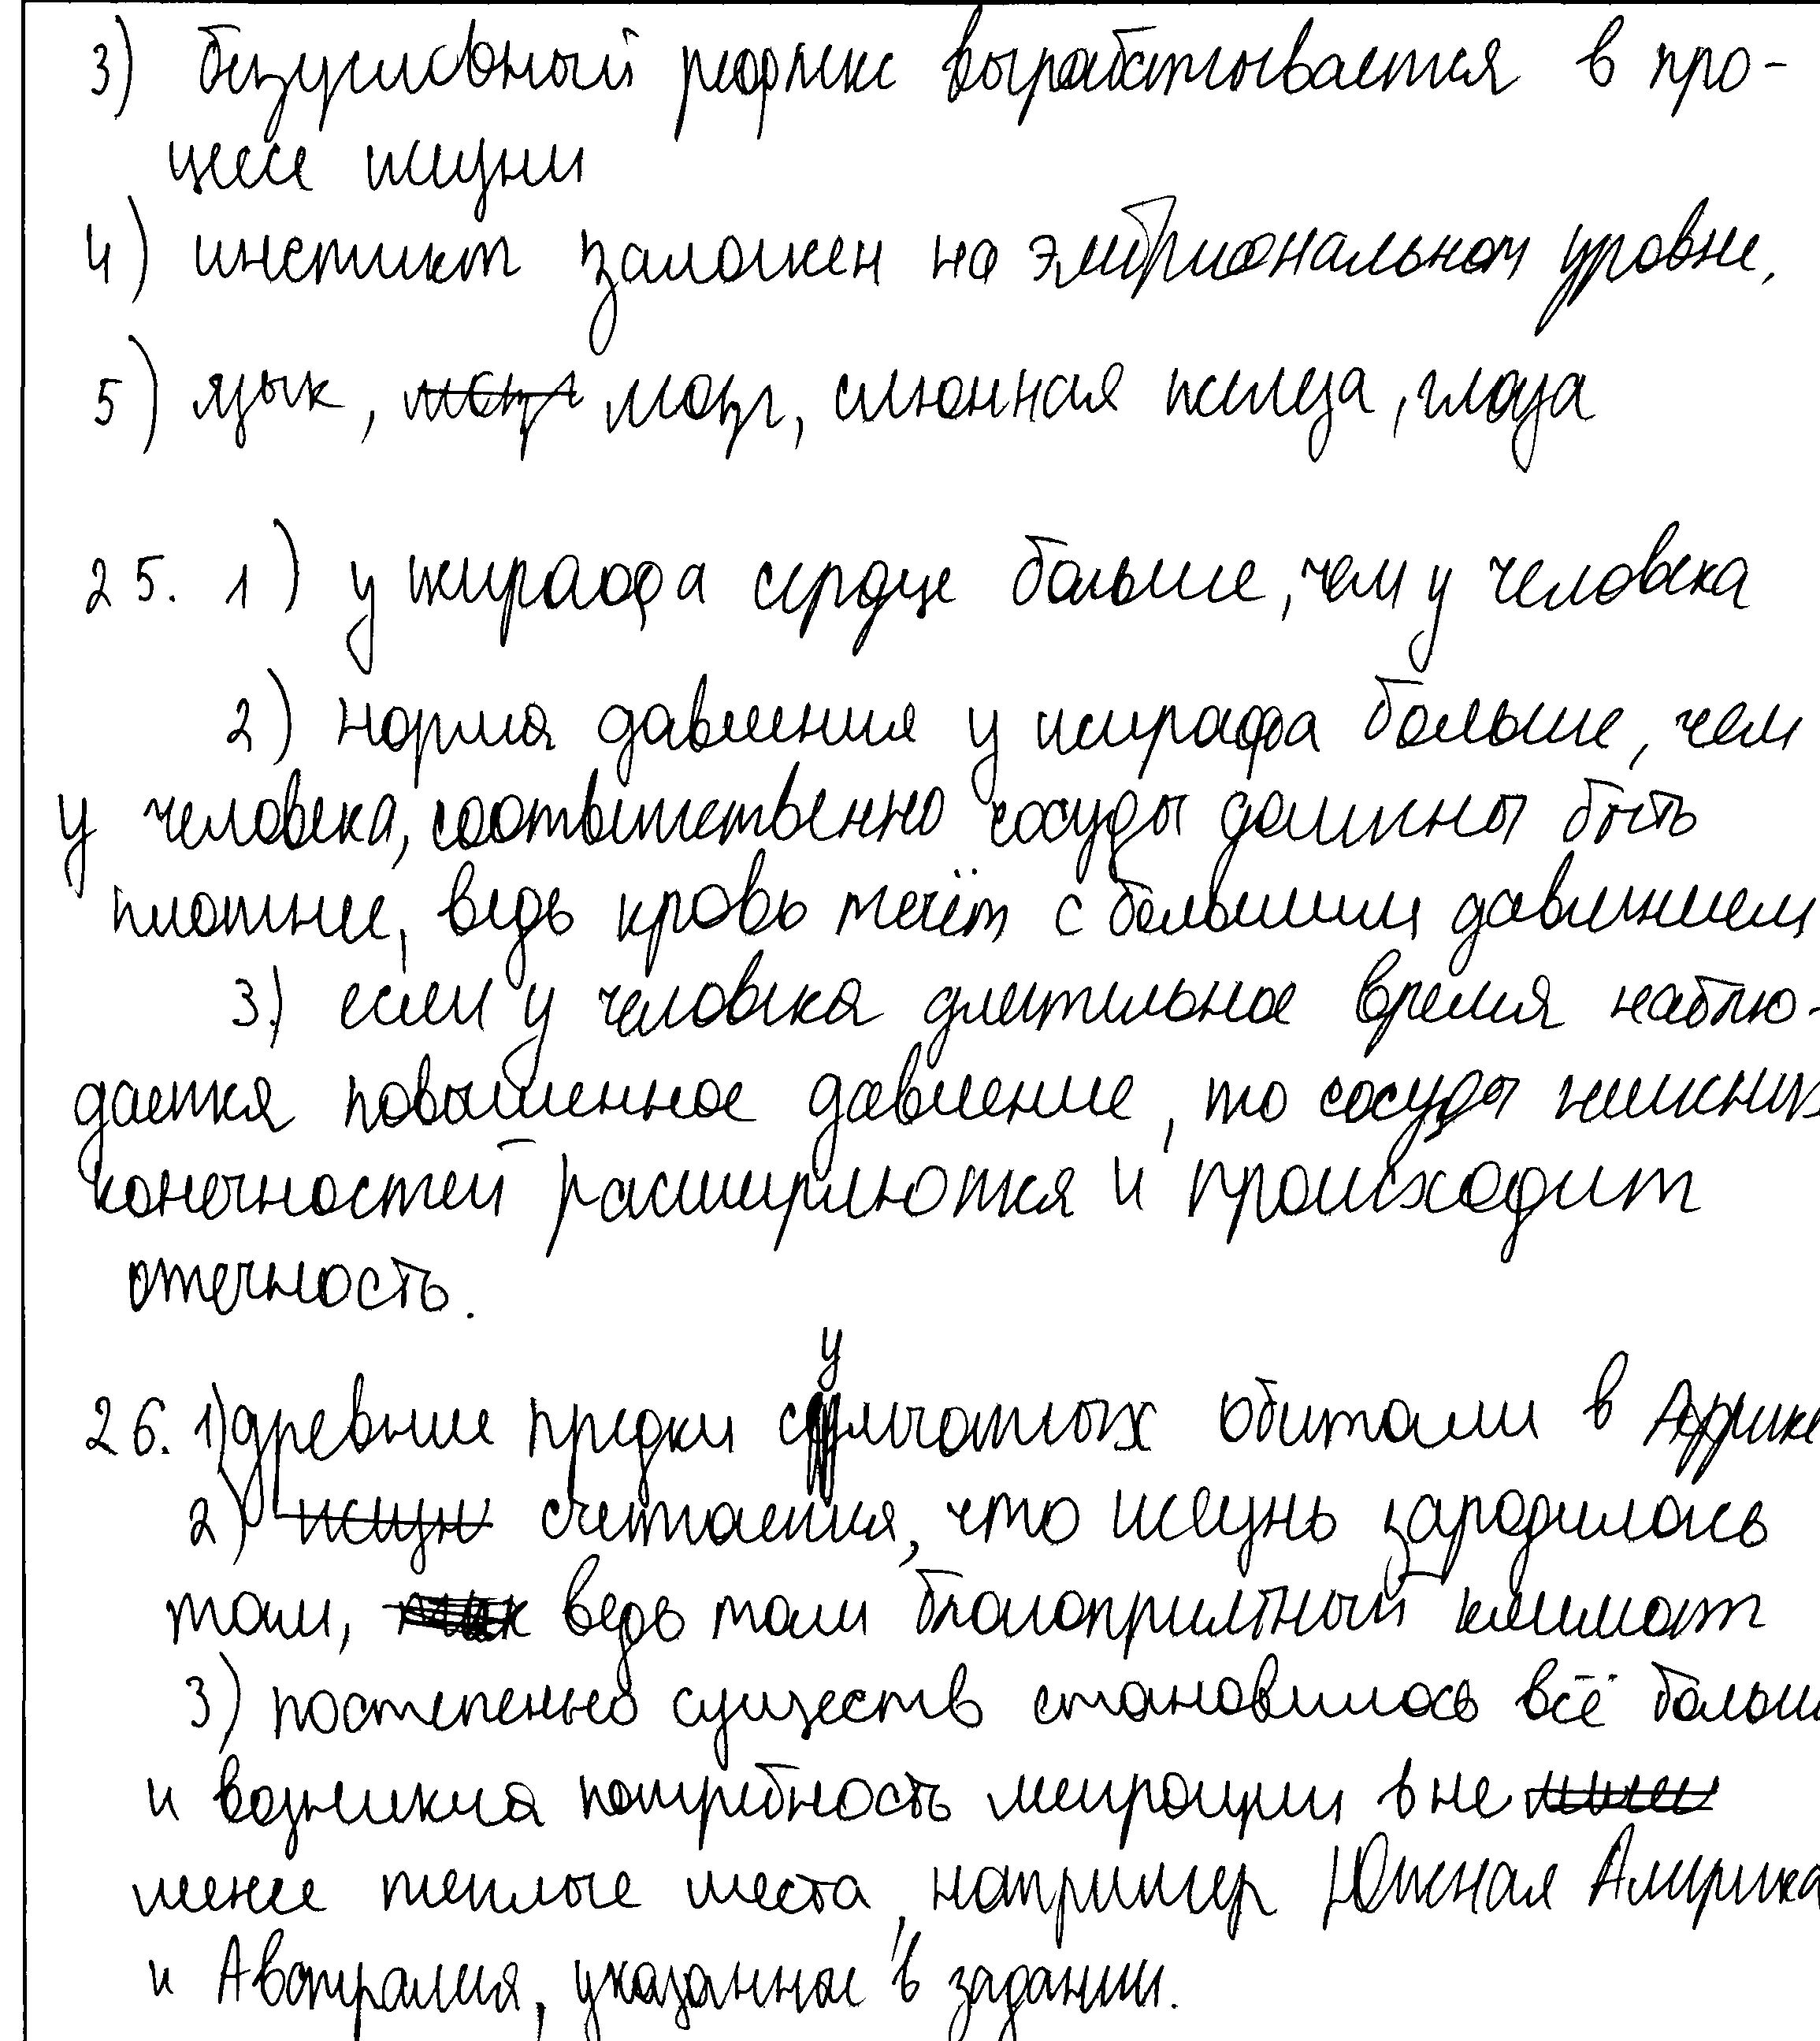 3) безусловный рефлекс вырабатывается в про-
цессе жизни
4) инстикт заложен на эмбриональном уровне,
5) язык, мозг, слюнная железа, глаза
25. 1) у жирафа сердце больше, чем у человека
2) норма давления у жирафа больше, чем
у человека, соответственно сосуды должны быть
плотнее, ведь кровь течёт с большим давлением
3) если у человека длительное время наблю-
дается повышенное давление, то сосуды нижних
конечностей расширяются и происходит
отечность.
26. 1) древние предки сумчатых обитали в Африке
2) считается, что жизнь зародилась
там, ведь там благоприятный климат
3) постепенно существ становилось всё больше
и возникла потребность миграции в не
менее теплые места, например Южная Америка
и Австралия, указанные в задании.